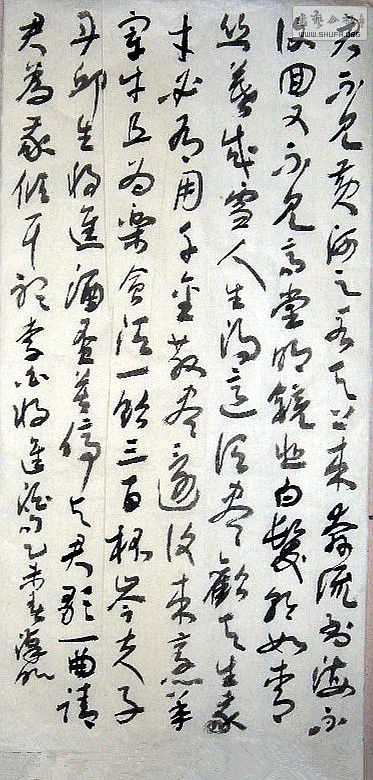 君不見黃河之水天上来奔流到海不
復回又不見高堂明鏡悲白髮朝如青
丝暮成雪人生得意須盡歡天生我
材必有用千金散盡還復来烹羊
宰牛且為樂會須一飲三百杯岑夫子
丹邱生將進酒盃莫停與君歌一曲請
君為我傾耳聽李白將進酒句乙未春
WWW.SHUFH.ORG